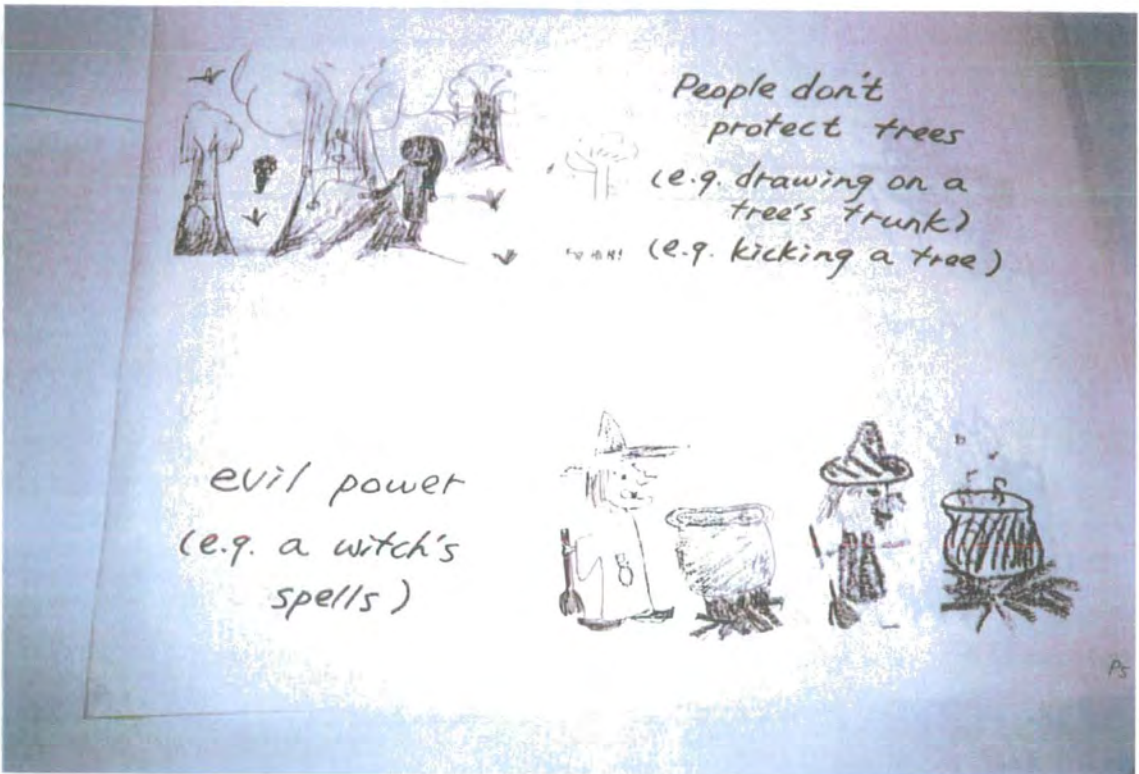 People don't
protect trees
(e.g. drawing on a
tree's trunk)
(e.g. kicking a tree)
evil power
(e.g. a witch's
spells)
P5